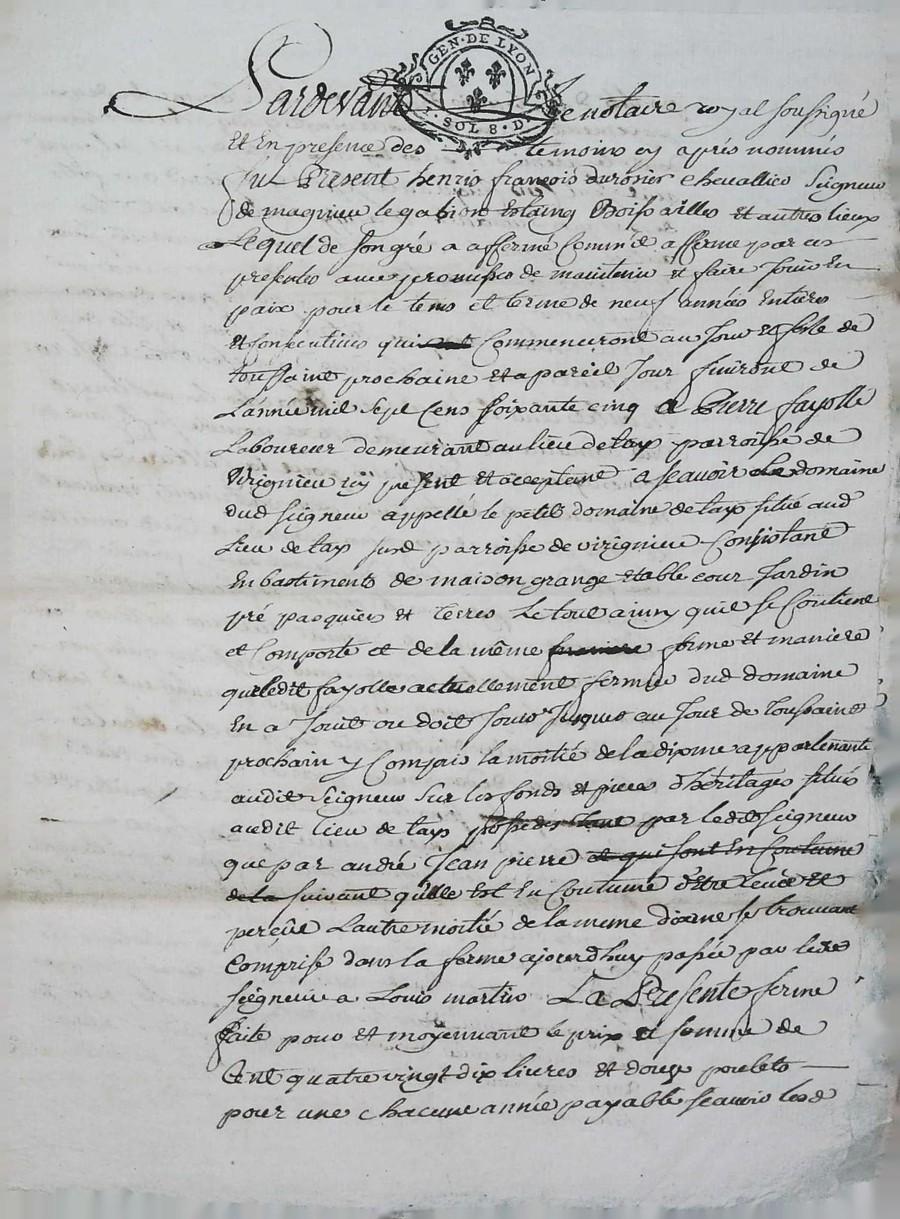 GEN · DE LYON
SOL 8 · D
Pardevant le notaire royal soussigné
Et En presence des temoins cy aprés nommés
fut Present henris françois durosier chevallier Seigneur
de magnieu le gabion Estaing Boissailles et autres lieux
Lequel de son gré a affermé Comme il afferme par ces
presentes avec promesses de maintenir et faire Jouir En
paix pour le tems et terme de neuf années Entieres
et Consecutives qui Commenceront au Jour et feste de
toussaint prochaine et a pareil Jour finiront de
Lannée mil sept Cens soixante cinq a Pierre fayolle
Laboureur demeurant au lieu de tax parroisse de
Virignieu icy present et acceptant a scavoir le domaine
dud seigneur appellé le petit domaine de tax situé aud
Lieu de tax susd parroisse de virignieu Consistant
En bastiments de maison grange Etable cour Jardin
pré pasquier et terres Le tout ainsy quil se Contient
et Comporte et de la même forme et maniere
que ledit fayolle actuellement fermier dud domaine
En a Jouit ou doit Jouir Jusques au Jour de toussaint
prochain y Compris la moitié de la dixme appartenante
audit Seigneur sur les fonds et pieces d'héritages situés
audit lieu de tax possedés tant par ledit seigneur
que par andré Jean pierre et qui sont En Coutume
de la suivant qu'elle Est En Coutume d'être levée et
perçüe Lautre moitié de la meme dixme se trouvant
Comprise dans la ferme ajourdhuy passée par ledit
seigneur a Louis martin La Presente ferme
faite pour et moyennant le prix et somme de
Cent quatre vingt dix livres et douze poulets
pour une chacune année payable scavoir lesd